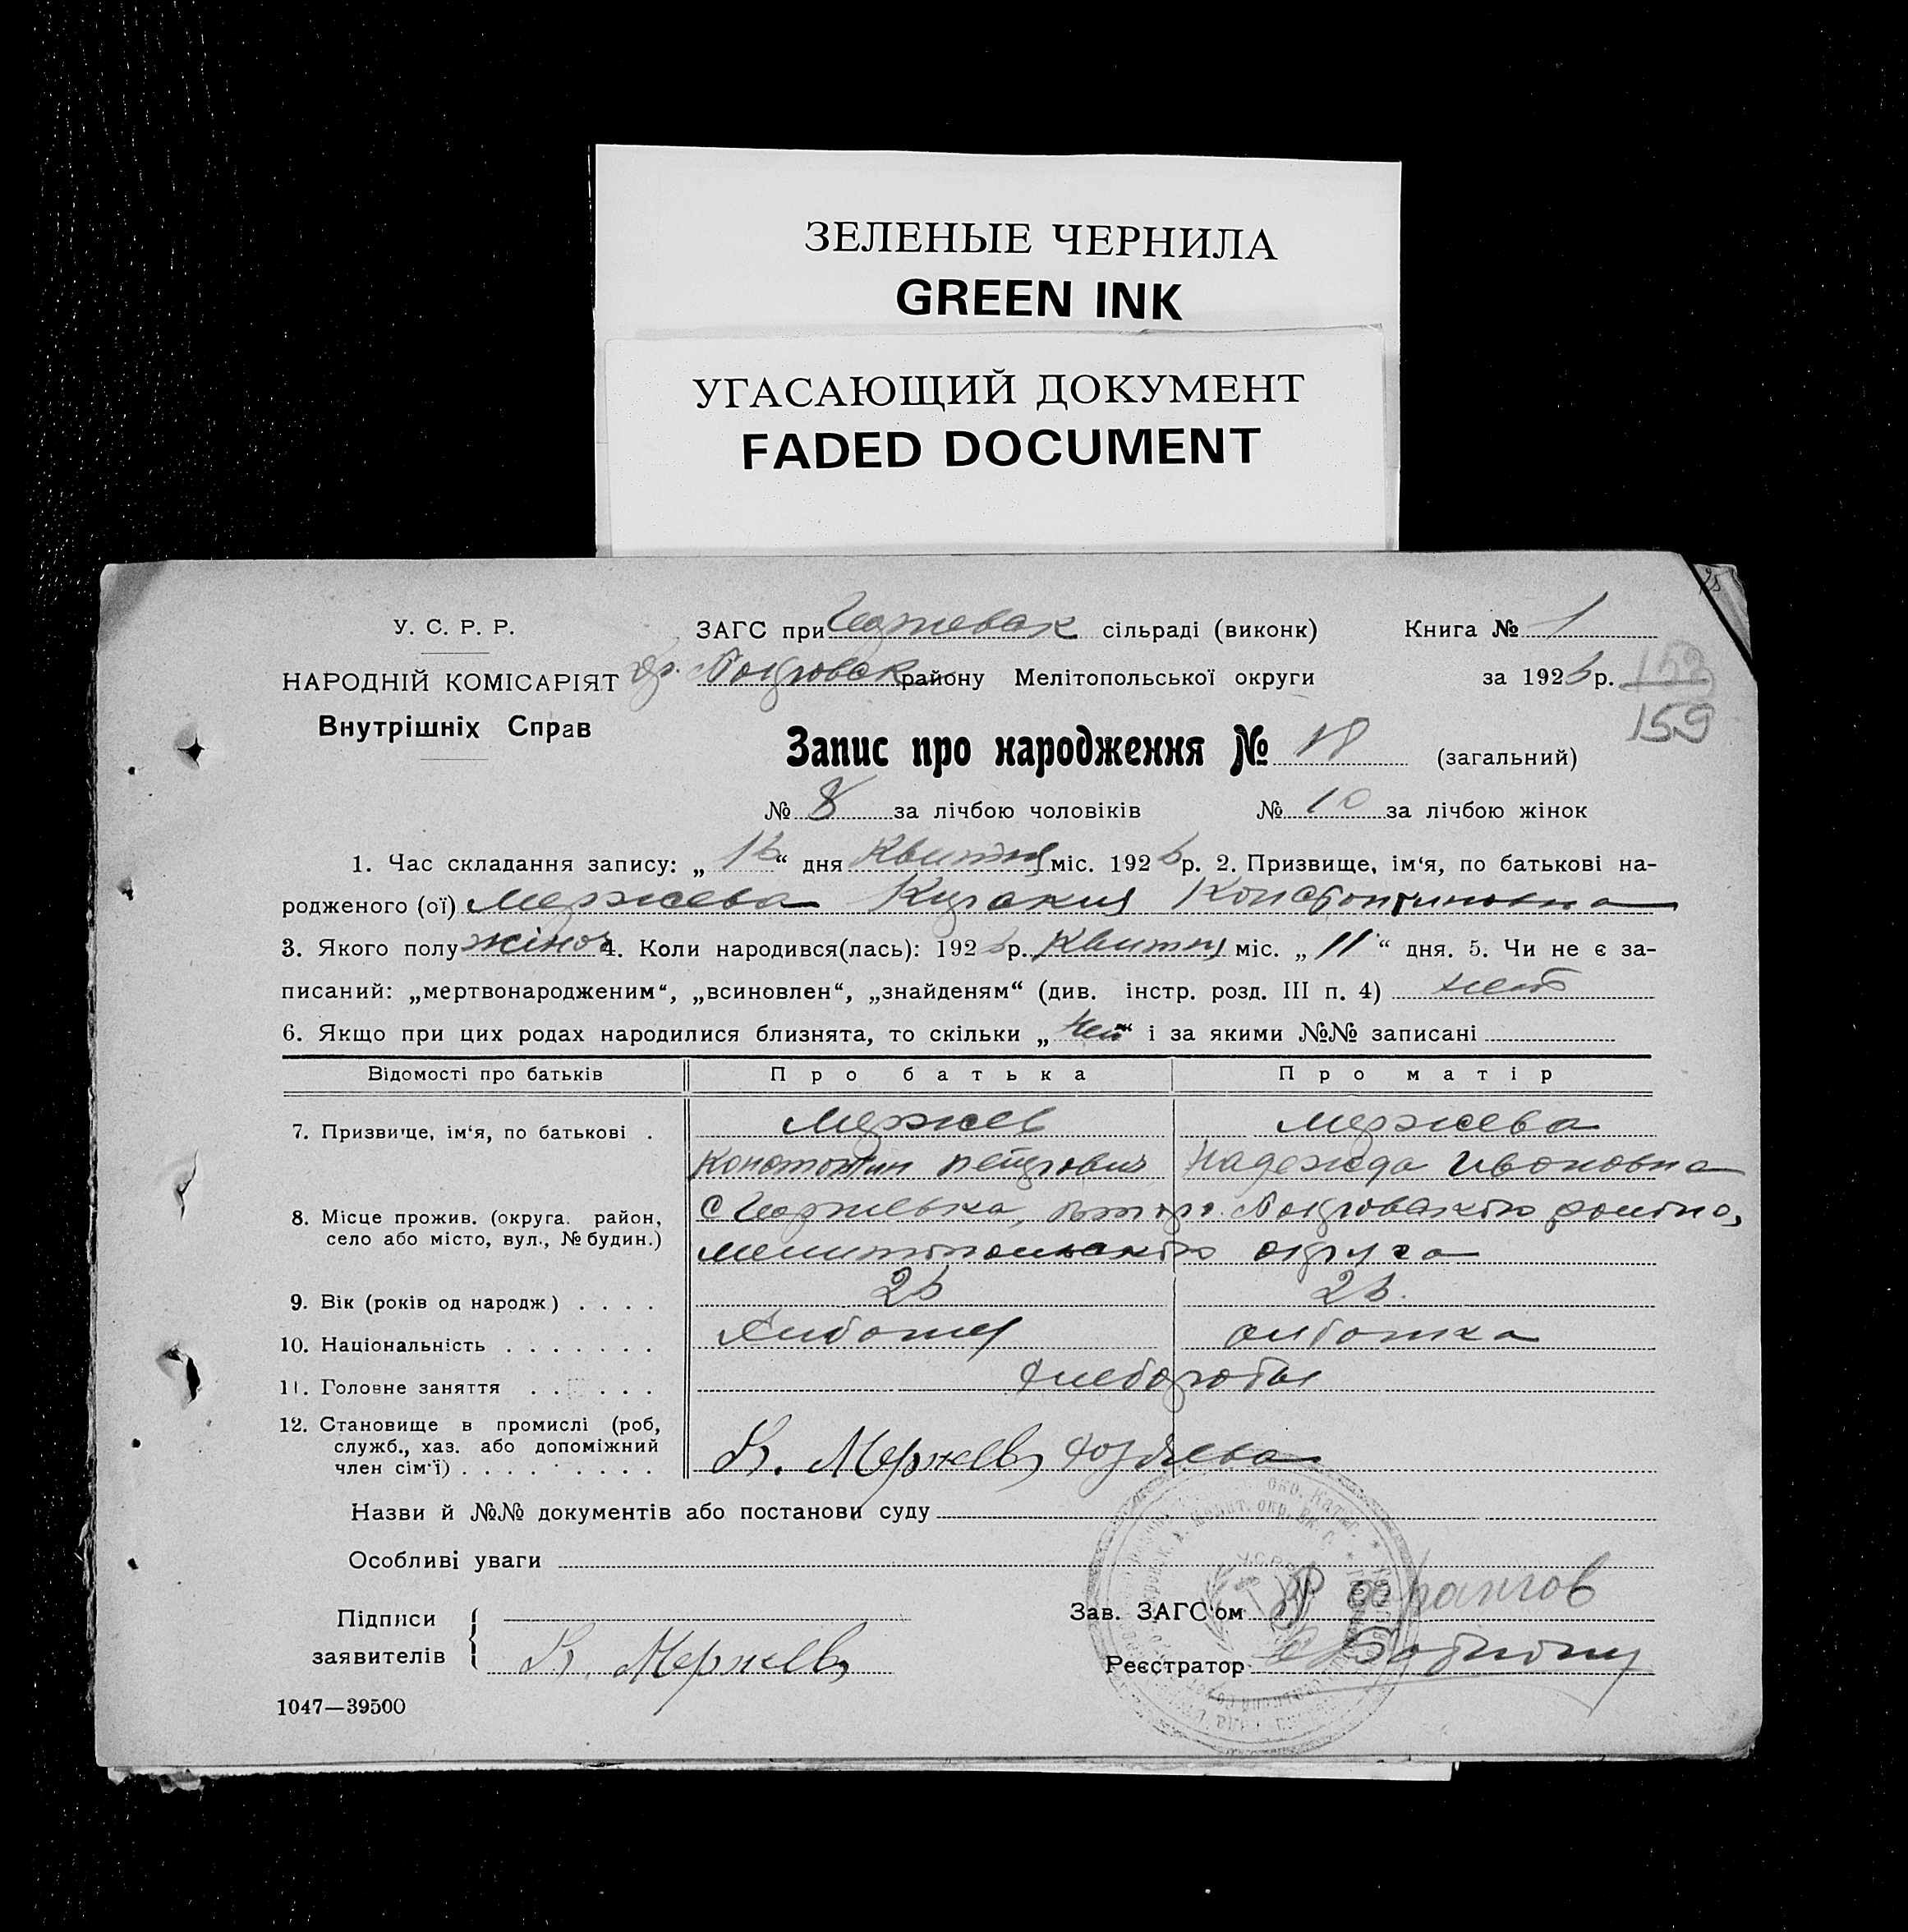 ЗЕЛЕНЫЕ ЧЕРНИЛА
GREEN INK
УГАСАЮЩИЙ ДОКУМЕНТ
FADED DOCUMENT
У. С. Р. Р.
НАРОДНІЙ КОМІСАРІЯТ
Внутрішніх Справ
ЗАГС при сільраді (виконк) Книга № 1
району Мелітопольської округи за 1926 р.
159
Запис про народження № 18 (загальний)
№ 8 за лічбою чоловіків № 10 за лічбою жінок
1. Час складання запису: „16“ дня Квитня міс. 1926 р. 2. Призвище, ім‘я, по батькові на-
родженого (ої) Мержева Константиновна
3. Якого полу жіноч 4. Коли народився(лась): 1926 р. Квитня міс. „11“ дня. 5. Чи не є за-
писаний: „мертвонародженим“, „всиновлен“, „знайденям“ (див. інстр. розд. III п. 4) нет
6. Якщо при цих родах народилися близнята, то скільки „нет“ і за якими №№ записані
Відомості про батьків Про батька Про матір
7. Призвище, ім‘я, по батькові . Мержев Мержева
Константин Петрович Надежда Ивановна
8. Місце прожив. (округа. район,
село або місто, вул., № будин.)
округа
9. Вік (років од народж) . . . . 26 26.
10. Національність . . . . . . .
11. Головне заняття . . . . . . хлеборобы
12. Становище в промислі (роб,
служб., хаз. або допоміжний
член сім‘ї) . . . . . . . . . К. Мержевъ
Назви й №№ документів або постанови суду
Особливі уваги
Підписи
заявителів К. Мержевъ
Зав. ЗАГС‘ом
Реєстратор
1047—39500